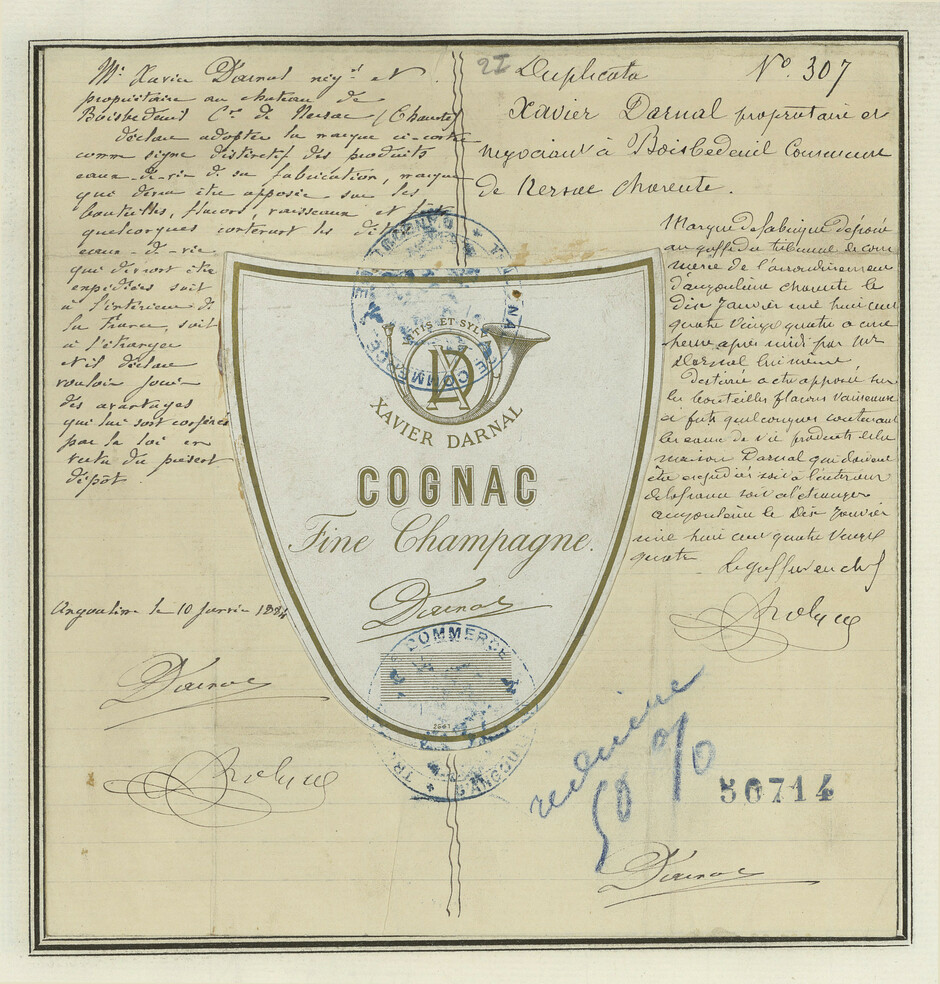 Mr Xavier Darnal négt et
propriétaire au chateau de
Boisbedeuil Cne de Nersac (Charente)
déclare adopter la marque ci-contre
comme signe distinctif des produits
eaux-de-vie de sa fabrication, marque
qui devra être apposée sur les
bouteilles, flacons, vaisseaux et fûts
quelconques contenant les dites
eaux-de-vie
qui devront être
expédiées soit
à l'intérieur de
la France, soit
à l'étranger
et il déclare
vouloir jouir
des avantages
qui lui sont conférés
par la loi en
vertu du présent
dépôt
Angoulême le 10 Janvier 1884
Darnal
2I Duplicata
No. 307
Xavier Darnal propriétaire et
négociant à Boisbedeuil Commune
de Nersac charente.
Marque de fabrique déposée
au greffe du tribunal de com
merce de l'arrondissement
d'angoulême charente le
dix Janvier mil huit cent
quatre vingt quatre a une
heure après midi par Mr
Darnal lui même
Destinée a être apposée sur
les bouteilles flacons vaisseaux
et futs quelconques contenant
les eaux de vie produits de la
maison Darnal qui doivent
être expédiés soit à l'intérieur
de la france soit a l'étranger
angoulême le Dix Janvier
mil huit cent quatre vingt
quatre
Le greffier en chef
ET SYLV
XD
XAVIER DARNAL
COGNAC
Fine Champagne.
Darnal
COMMERCE
COMMERCE
D'ANGOU
réduire
50 %
50714
Darnal